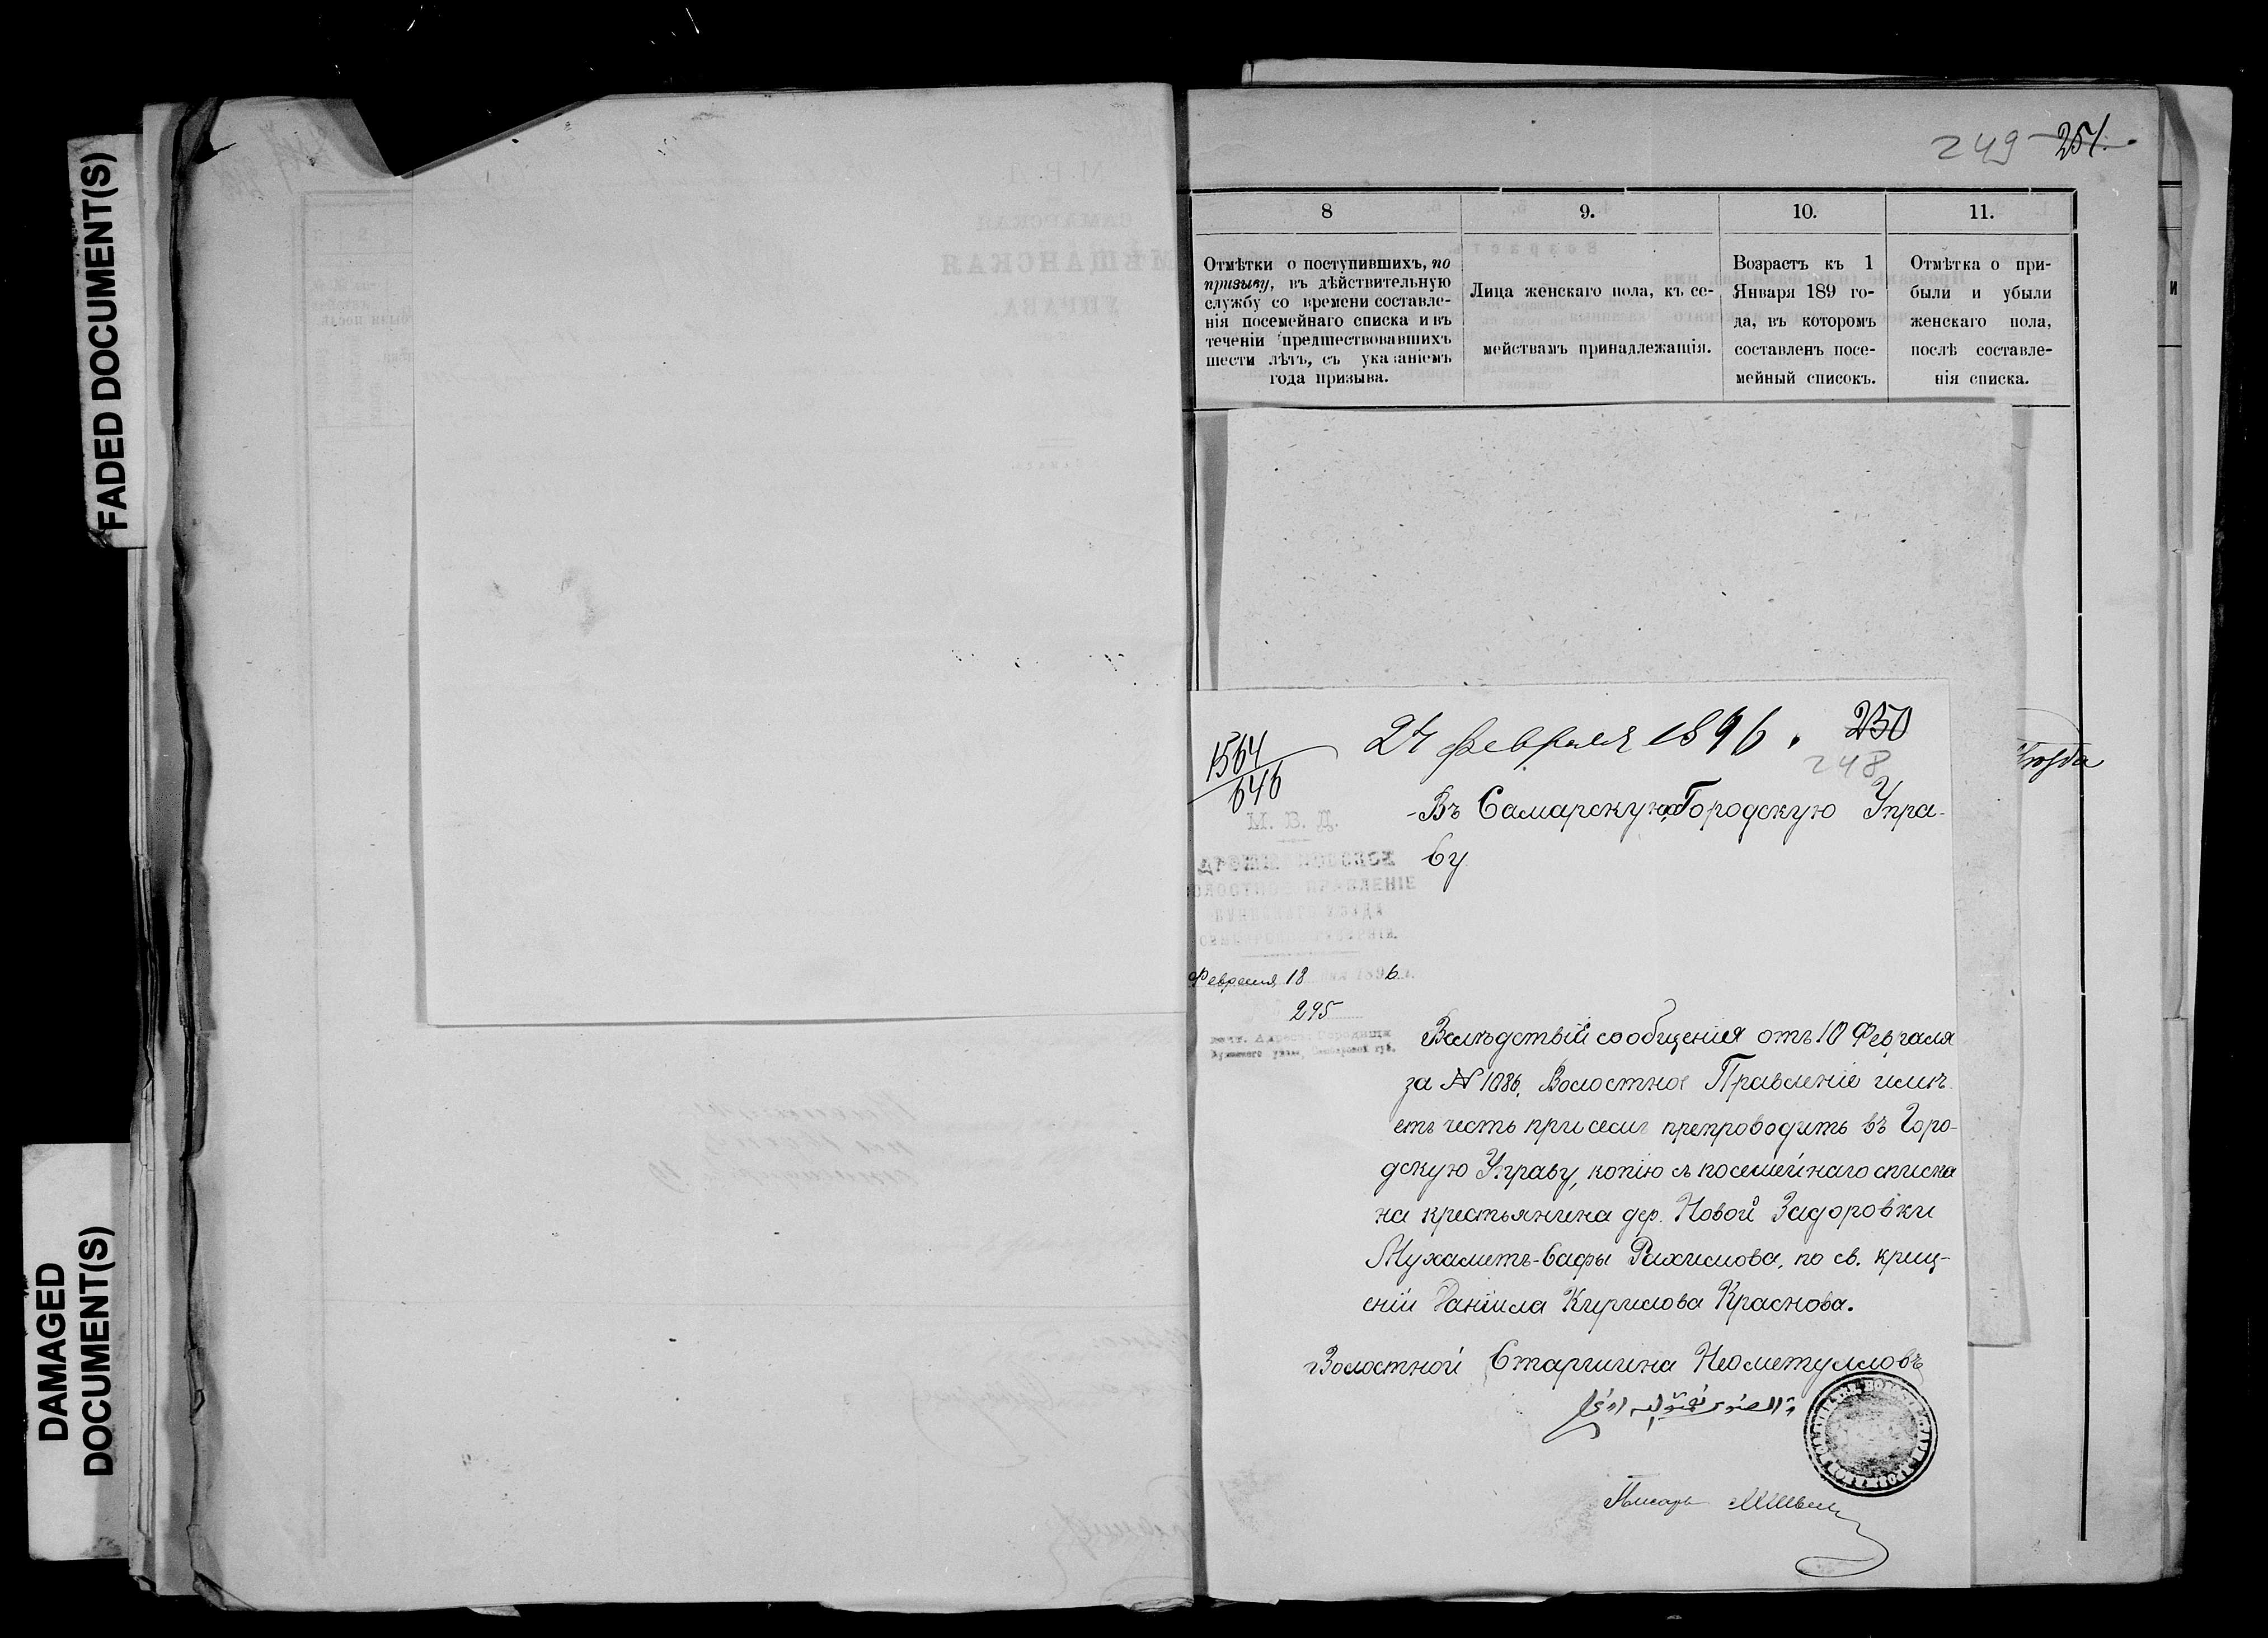 FADED DOCUMENT(S)
DAMAGED
DOCUMENT(S)
249 251.
8
9.
10.
11.
Отмѣтки о поступившихъ, по
призыву, въ дѣйствительную
службу со времени составле-
нія посемейнаго списка и въ
теченіи предшествовавшихъ
шести лѣтъ, съ указаніемъ
года призыва.
Лица женскаго пола, къ се-
мействамъ принадлежащія.
Возрастъ къ 1
Января 189 го-
да, въ которомъ
составленъ посе-
мейный списокъ.
Отмѣтка о при-
были и убыли
женскаго пола,
послѣ составле-
нія списка.
и
1564
646
24 февраля 1896.
250
248
Въ Самарскую Городскую Упра-
ву
М. В. Д.
ВОЛОСТНОЕ ПРАВЛЕНІЕ
Февраля 18 1896 г.
295
Вслѣдствіи сообщенія отъ 10 Февраля
за N 1086, Волостное Правленіе имѣ-
етъ честь при семъ препроводить въ Горо-
дскую Управу, копію съ посемейнаго списка
на крестьянина дер. Новой Задоровки
Мухаметъ-Сафы Рахимова, по св. крещ-
еніи Даніила Кирилова Краснова.
Волостной Старшина Неаметулловъ
Писарь